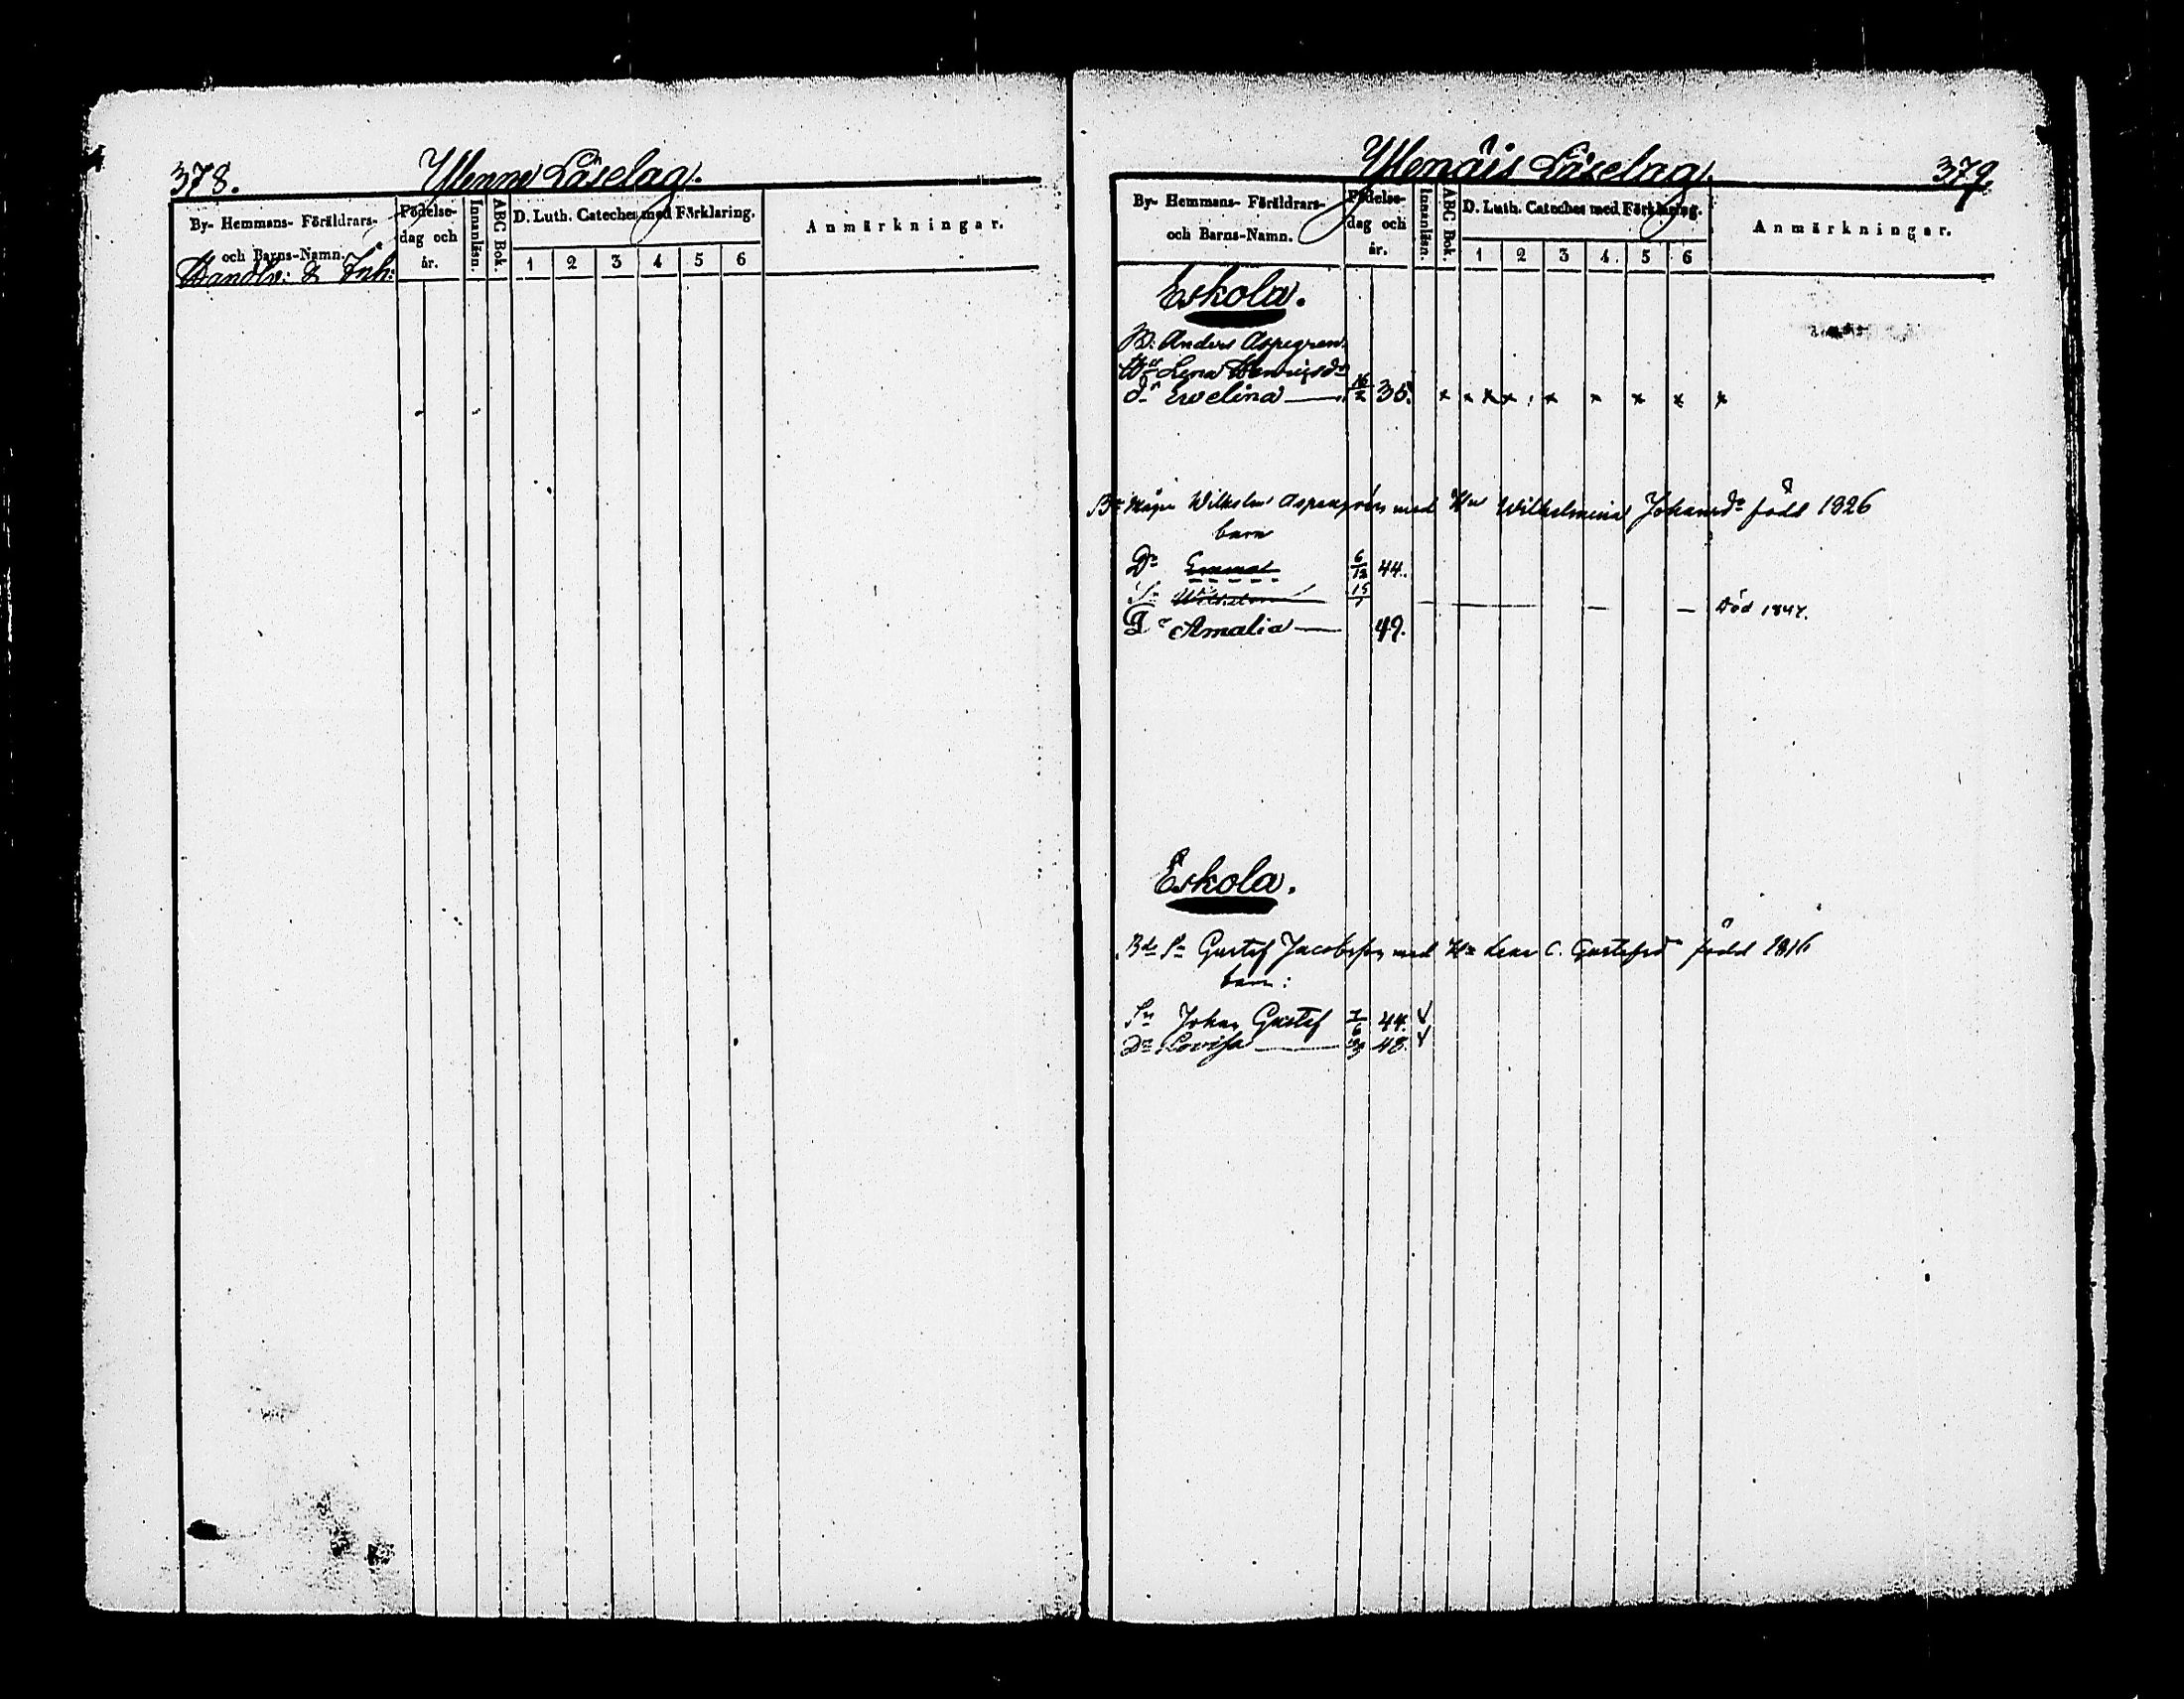 378. Läselag.
By- Hemmans- Föräldrars- och Barns-Namn.
Födelse-dag och år.
Innanläsn.
ABC Bok.
D. Luth. Cateches med Förklaring.
1 2 3 4 5 6
Anmärkningar.
& Inh:
Läselag. 379.
By- Hemmans- Föräldrars- och Barns-Namn.
Födelse-dag och år.
Innanläsn.
ABC Bok.
D. Luth. Cateches med Förklaring.
1 2 3 4 5 6
Anmärkningar.
Eskola.
B: Anders Aspegren
Hu Lena Henrigsdr
dr Evelina — 16/2 35. x x x x x x x x x
Måge Wilhelm Aspengrén med Hu Wilhelmina Johansdr född 1826
barn
Dr Emma 6/12 44.
Sn Wilhelm 15/1 — — — död 1847.
Dr Amalia — 49.
Eskola.
Sn Gustef Jacobsson med Hu Lena C. Gustafsdr född 1816
barn:
Sn Johan Gustef 7/6 44. v
Dr Lovisa — 48. v